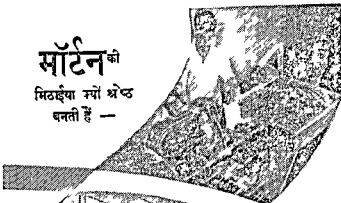 मॉर्टन की
मिठाईया क्यों श्रेष्ठ
बनती हैं —